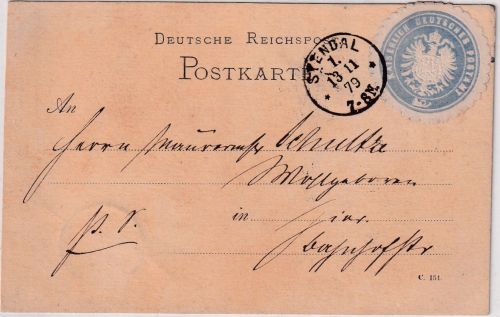 DEUTSCHE REICHSPOST
POSTKARTE
STENDAL
1
13 11
79
7-8N.
KAISERLICH DEUTSCHES POSTAMT
An
Herrn Maurermstr Schultze
Wohlgeboren
p. S. in hier.
Bahnhofstr
C. 154.